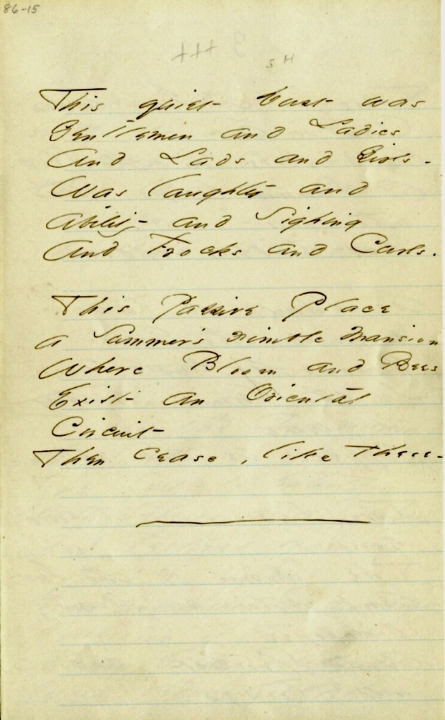 86-15
This quiet Dust was
Gentlemen and Ladies
And Lads and Girls -
Was laughter and
Ability and Sighing
And Frocks and Curls.
This Passive Place
a Summer's nimble Mansion
Where Bloom and Bees
Exist an Oriental
Circuit
Then cease, like these -